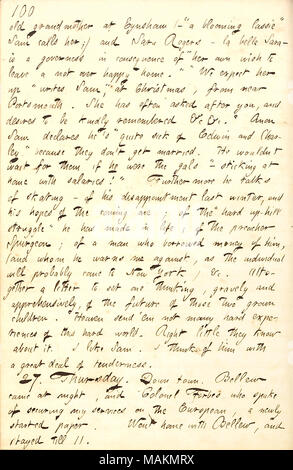 100
old grandmother at Eynsham (- "a blooming lassie"
Sam calls her;) and Sara Rogers - la belle Sara -
is a governess in consequence of "her own wish to
leave a not over happy home." "We expect her
up" writes Sam, "at Christmas, from near
Portsmouth. She has often asked after you, and
desires to be kindly remembered &c &c." Anon
Sam declares he's "quite sick of Edwin and Char-
ley" because they don't get married. He wouldn't
wait for them if he were the gals "sticking at
home with salaries!" Further more he talks
of skating - of his disappointment last winter, and
his hopes of the coming one; of the "hard up-hill
struggle" he has made in life; of the preacher
Spurgeon; of a man who borrowed money of him,
(and whom he warns me against, as the individual
will probably come to New York,) &c. Alto-
gether a letter to set one thinking, gravely and
apprehensively, of the future of those two grown
children. Heaven send 'em not many hard expe-
riences of this hard world. Right little they know
about it. I like Sam. I think of him with
a great deal of tenderness.
27. Thursday. Down town. Bellew
came at night, and Colonel Forbes, who spoke
of securing my services on the European, a newly
started paper. Went home with Bellew, and
stayed till 11.
alamy
Image ID: MAKMRX
www.alamy.com